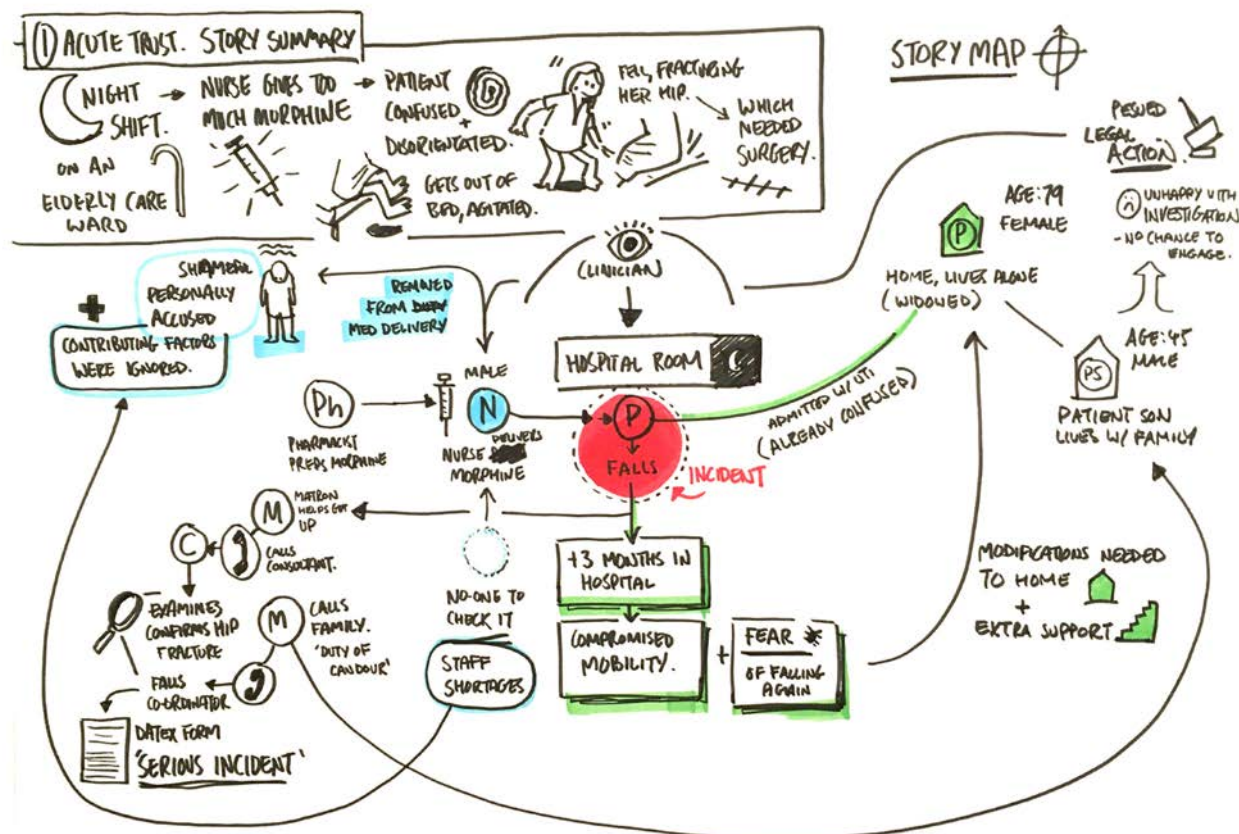 ① ACUTE TRUST. STORY SUMMARY
NIGHT
SHIFT.
ON AN
ELDERLY CARE
WARD
NURSE GIVES TOO
MUCH MORPHINE
PATIENT
CONFUSED
+
DISORIENTATED.
GETS OUT OF
BED, AGITATED.
FELL, FRACTURING
HER HIP.
WHICH
NEEDED
SURGERY.
STORY MAP
PESUED
LEGAL
ACTION.
UNHAPPY WITH
INVESTIGATION
- NO CHANCE TO
ENGAGE.
AGE: 79
FEMALE
P
HOME, LIVES ALONE
(WIDOWED)
AGE: 45
MALE
PS
PATIENT SON
LIVES W/ FAMILY
CLINICIAN
PERSONALLY
ACCUSED
+
CONTRIBUTING FACTORS
WERE IGNORED.
REMOVED
FROM
MED DELIVERY
HOSPITAL ROOM
MALE
Ph
PHARMACIST
PREPS MORPHINE
N
NURSE DELIVERS
MORPHINE
P
FALLS
INCIDENT
ADMITTED W/ UTI
(ALREADY CONFUSED)
M
MATRON
HELPS GET
UP
C
CALLS
CONSULTANT.
EXAMINES
CONFIRMS HIP
FRACTURE
M
CALLS
FAMILY.
'DUTY OF
CANDOUR'
FALLS
CO-ORDINATOR
DATEX FORM
'SERIOUS INCIDENT'
NO-ONE TO
CHECK IT
STAFF
SHORTAGES
+3 MONTHS IN
HOSPITAL
COMPROMISED
MOBILITY.
+
FEAR
OF FALLING
AGAIN
MODIFICATIONS NEEDED
TO HOME
+
EXTRA SUPPORT